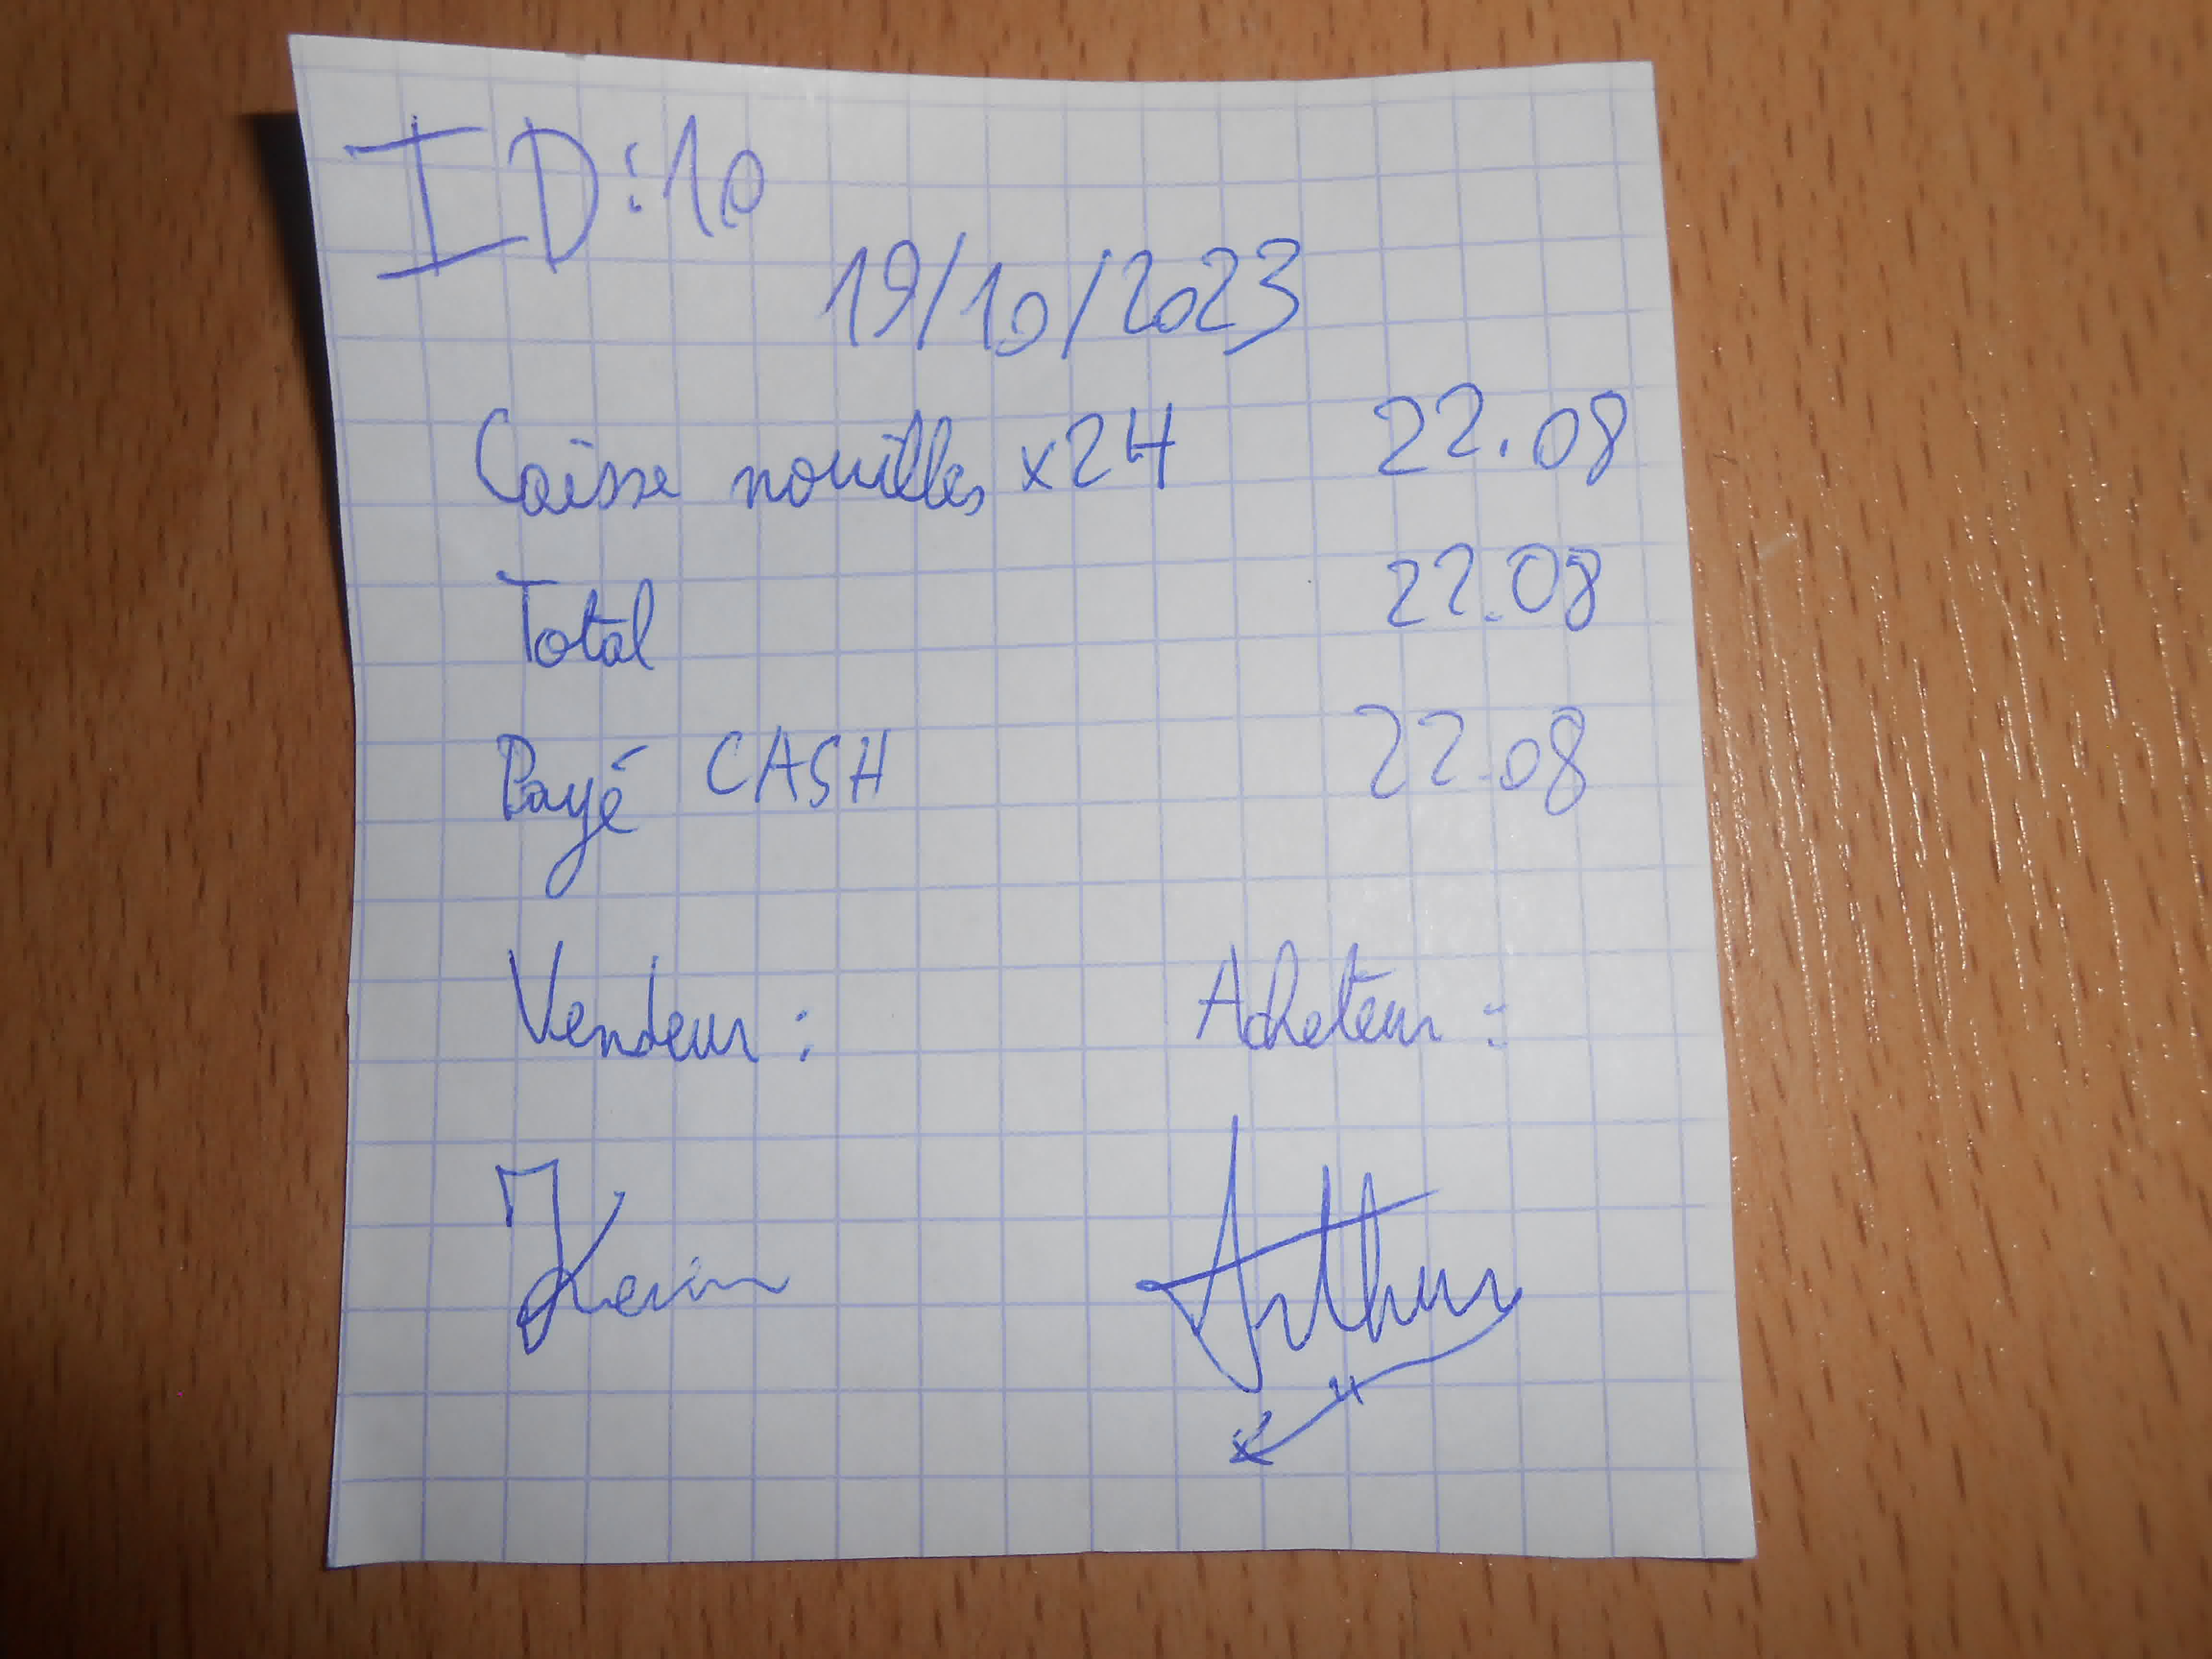 ID:10
19/10/2023
Caisse nouilles x24 22.08
Total 22.08
Payé CASH 22.08
Vendeur : Acheteur :
Kevin Arthur